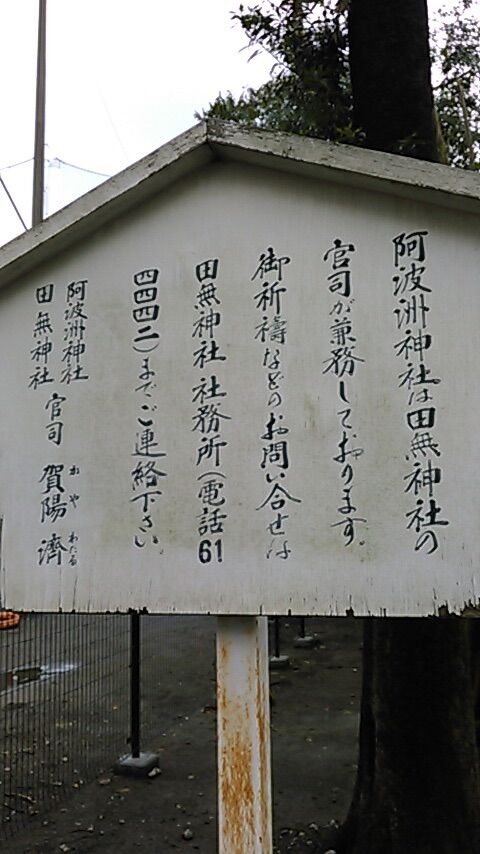 阿波洲神社は田無神社の
宮司が兼務しております。
御祈祷などのお問い合せは
田無神社社務所(電話61
四四四二)までご連絡下さい。
阿波洲神社
田無神社
宮司 賀陽 濟
かや わたる